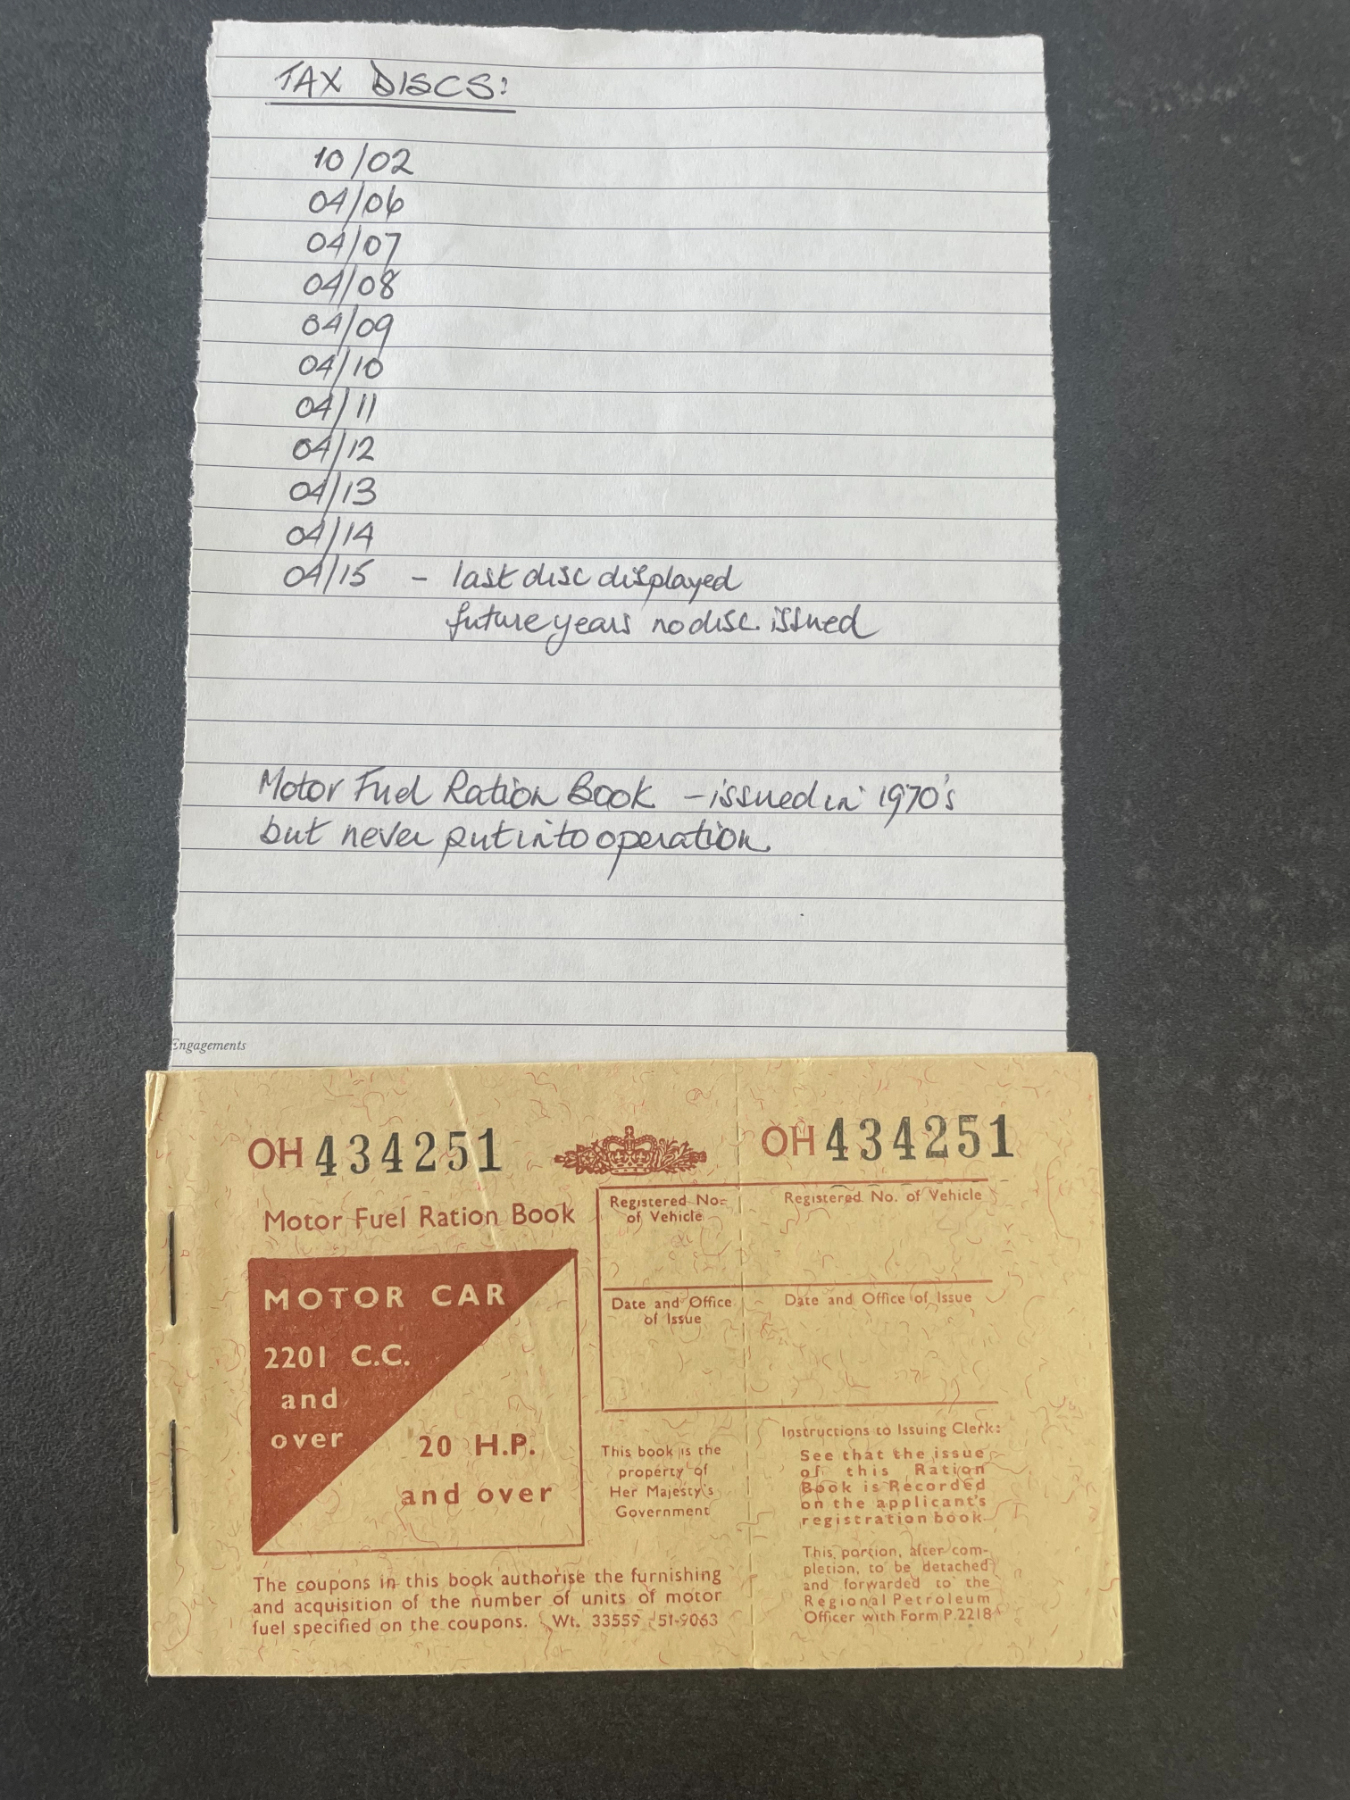 TAX DISCS:
10/02
04/06
04/07
04/08
04/09
04/10
04/11
04/12
04/13
04/14
04/15 - last disc displayed
future years no disc issued
Motor Fuel Ration Book - issued in 1970's
but never put into operation.
Engagements
OH 434251
OH 434251
Motor Fuel Ration Book
MOTOR CAR
2201 C.C.
and
over
20 H.P.
and over
Registered No.
of Vehicle
Registered No. of Vehicle
Date and Office
of Issue
Date and Office of Issue
This book is the
property of
Her Majesty's
Government
Instructions to Issuing Clerk:
See that the issue
of this Ration
Book is Recorded
on the applicant's
registration book
This portion, after com-
pletion, to be detached
and forwarded to the
Regional Petroleum
Officer with Form P.2218
The coupons in this book authorise the furnishing
and acquisition of the number of units of motor
fuel specified on the coupons. Wt. 33559 51-9063